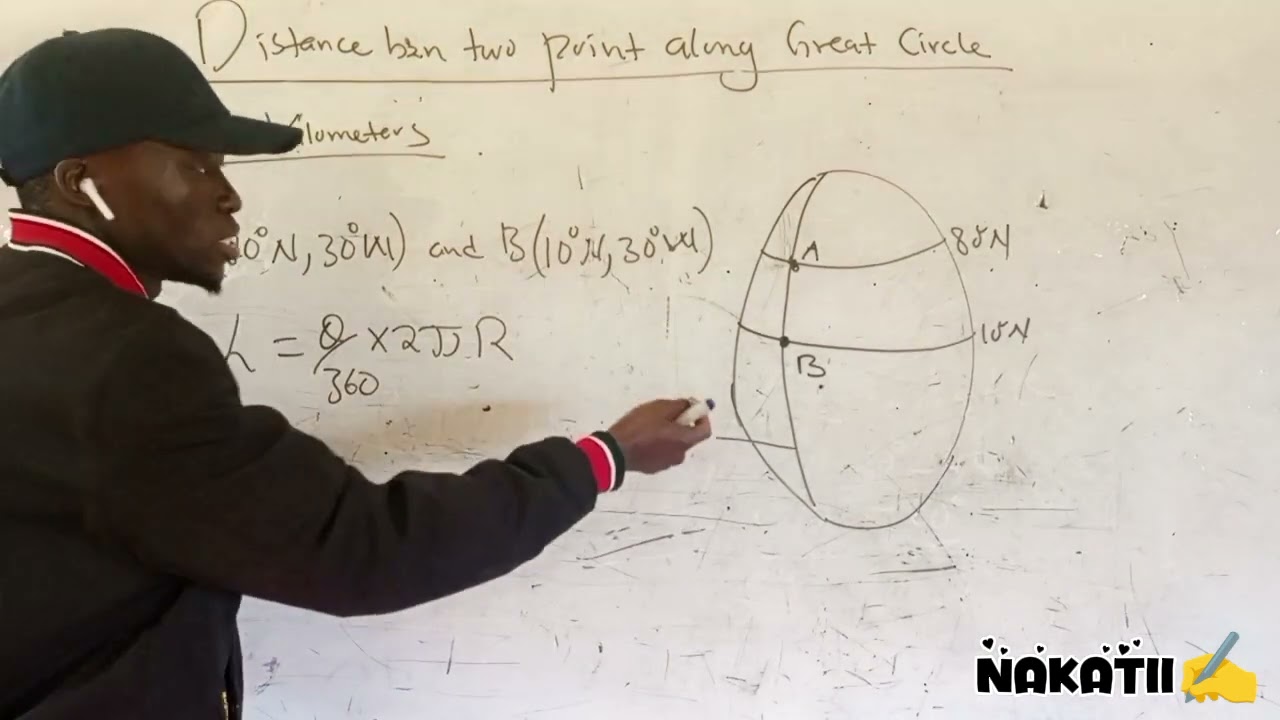 Distance btn two point along Great Circle
Kilometers
0°N, 30°W) and B(10°N, 30°W)
L = θ/360 × 2πR
A
80°N
10°N
B
NAKATII